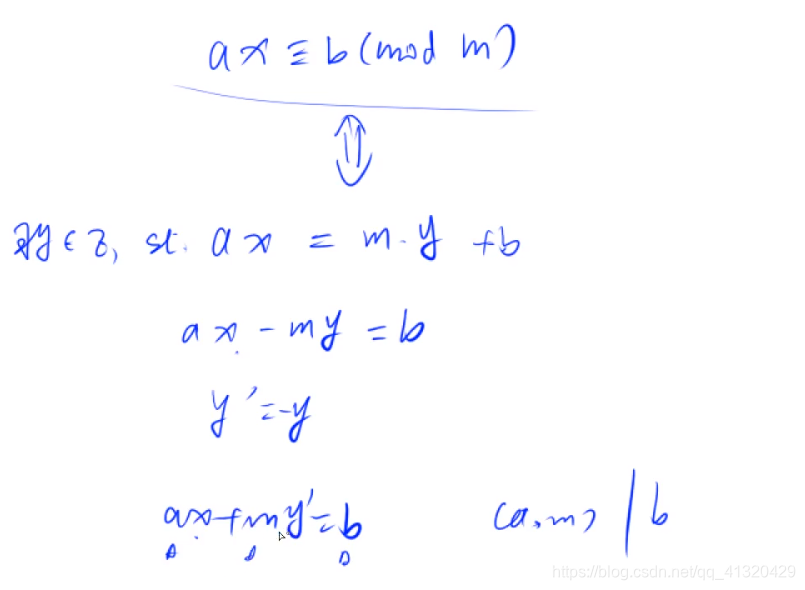 ax ≡ b (mod m)
∃y ∈ Z, st. ax = m·y + b
ax - my = b
y' = -y
ax + my' = b
(a, m) | b
https://blog.csdn.net/qq_41320429